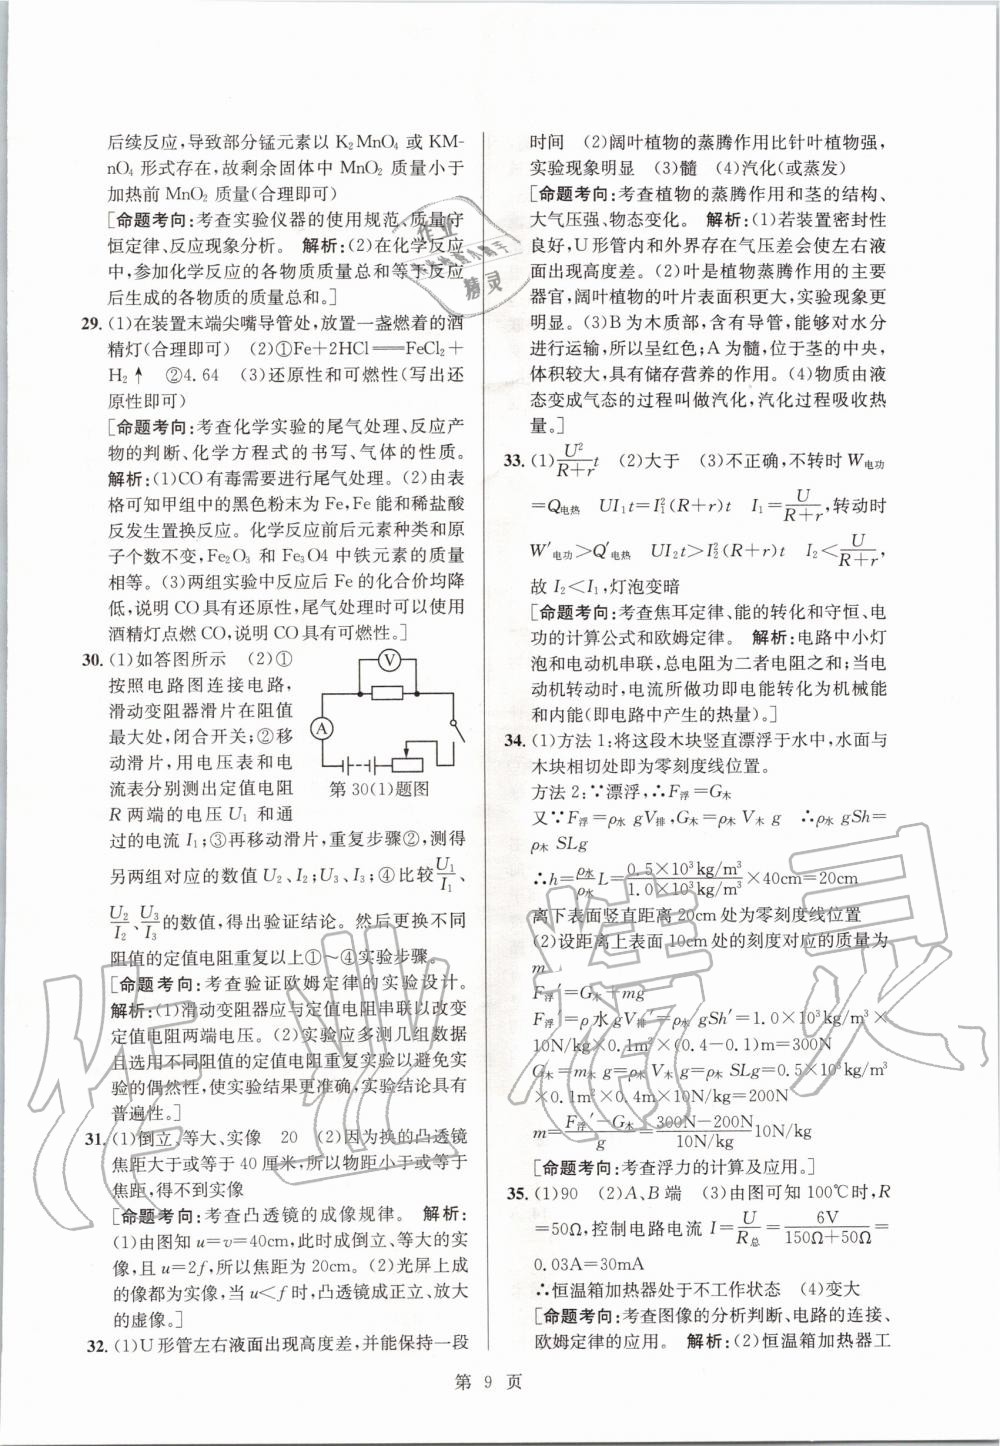 后续反应,导致部分锰元素以 K₂MnO₄ 或 KM-
nO₄ 形式存在,故剩余固体中 MnO₂ 质量小于
加热前 MnO₂ 质量(合理即可)
[命题考向:考查实验仪器的使用规范、质量守
恒定律、反应现象分析。 解析:(2)在化学反应
中,参加化学反应的各物质质量总和等于反应
后生成的各物质的质量总和。]
29. (1)在装置末端尖嘴导管处,放置一盏燃着的酒
精灯(合理即可) (2)①Fe+2HCl══FeCl₂+
H₂↑ ②4.64 (3)还原性和可燃性(写出还
原性即可)
[命题考向:考查化学实验的尾气处理、反应产
物的判断、化学方程式的书写、气体的性质。
解析:(1)CO有毒需要进行尾气处理。(2)由表
格可知甲组中的黑色粉末为 Fe,Fe 能和稀盐酸
反发生置换反应。化学反应前后元素种类和原
子个数不变,Fe₂O₃ 和 Fe₃O4 中铁元素的质量
相等。(3)两组实验中反应后 Fe 的化合价均降
低,说明 CO 具有还原性,尾气处理时可以使用
酒精灯点燃 CO,说明 CO 具有可燃性。]
30. (1)如答图所示 (2)①
按照电路图连接电路,
滑动变阻器滑片在阻值
最大处,闭合开关;②移
动滑片,用电压表和电
流表分别测出定值电阻
R 两端的电压 U₁ 和通
V
A
第30(1)题图
过的电流 I₁;③再移动滑片,重复步骤②,测得
另两组对应的数值 U₂、I₂;U₃、I₃;④比较U₁/I₁、
U₂/I₂、U₃/I₃的数值,得出验证结论。然后更换不同
阻值的定值电阻重复以上①~④实验步骤。
[命题考向:考查验证欧姆定律的实验设计。
解析:(1)滑动变阻器应与定值电阻串联以改变
定值电阻两端电压。(2)实验应多测几组数据
且选用不同阻值的定值电阻重复实验以避免实
验的偶然性,使实验结果更准确,实验结论具有
普遍性。]
31. (1)倒立、等大、实像 20 (2)因为换的凸透镜
焦距大于或等于 40 厘米,所以物距小于或等于
焦距,得不到实像
[命题考向:考查凸透镜的成像规律。 解析:
(1)由图知 u=v=40cm,此时成倒立、等大的实
像,且 u=2f,所以焦距为 20cm。(2)光屏上成
的像都为实像,当 u<f 时,凸透镜成正立、放大
的虚像。]
32. (1)U 形管左右液面出现高度差,并能保持一段
时间 (2)阔叶植物的蒸腾作用比针叶植物强,
实验现象明显 (3)髓 (4)汽化(或蒸发)
[命题考向:考查植物的蒸腾作用和茎的结构、
大气压强、物态变化。 解析:(1)若装置密封性
良好,U 形管内和外界存在气压差会使左右液
面出现高度差。(2)叶是植物蒸腾作用的主要
器官,阔叶植物的叶片表面积更大,实验现象更
明显。(3)B 为木质部,含有导管,能够对水分
进行运输,所以呈红色;A 为髓,位于茎的中央,
体积较大,具有储存营养的作用。(4)物质由液
态变成气态的过程叫做汽化,汽化过程吸收热
量。]
33. (1)U²/(R+r)t (2)大于 (3)不正确,不转时 W电功
=Q电热 UI₁t=I₁²(R+r)t I₁=U/(R+r),转动时
W′电功>Q′电热 UI₂t>I₂²(R+r)t I₂<U/(R+r),
故 I₂<I₁,灯泡变暗
[命题考向:考查焦耳定律、能的转化和守恒、电
功的计算公式和欧姆定律。 解析:电路中小灯
泡和电动机串联,总电阻为二者电阻之和;当电
动机转动时,电流所做功即电能转化为机械能
和内能(即电路中产生的热量)。]
34. (1)方法 1:将这段木块竖直漂浮于水中,水面与
木块相切处即为零刻度线位置。
方法 2:∵漂浮,∴F浮=G木
又∵F浮=ρ水 gV排,G木=ρ木 V木 g ∴ρ水 gSh=
ρ木 SLg
∴h=ρ木/ρ水L=0.5×10³kg/m³/1.0×10³kg/m³×40cm=20cm
离下表面竖直距离 20cm 处为零刻度线位置
(2)设距离上表面 10cm 处的刻度对应的质量为
m
F浮′=G木+mg
F浮′=ρ水gV排′=ρ水 gSh′=1.0×10³kg/m³×
10N/kg×0.1m²×(0.4−0.1)m=300N
G木=m木 g=ρ木V木 g=ρ木 SLg=0.5×10³kg/m³
×0.1m²×0.4m×10N/kg=200N
m=(F浮′−G木)/g=(300N−200N)/10N/kg10N/kg
[命题考向:考查浮力的计算及应用。]
35. (1)90 (2)A、B 端 (3)由图可知 100℃时,R
=50Ω,控制电路电流 I=U/R总=6V/(150Ω+50Ω)=
0.03A=30mA
∴恒温箱加热器处于不工作状态 (4)变大
[命题考向:考查图像的分析判断、电路的连接、
欧姆定律的应用。 解析:(2)恒温箱加热器工
第 9 页
作业精灵